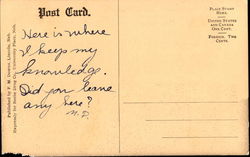 Post Card.
PLACE STAMP
HERE.
UNITED STATES
AND CANADA
ONE CENT.
FOREIGN, TWO
CENTS.
Here is where
I keeps my
knowledge.
Did you leave
any here?
Published by F. M. Downs, Lincoln, Neb.